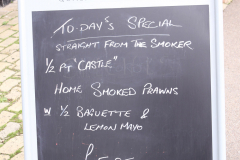 TO-DAY'S SPECIAL
STRAIGHT FROM THE SMOKER
1/2 PT "CASTLE"
HOME SMOKED PRAWNS
W 1/2 BAGUETTE &
LEMON MAYO